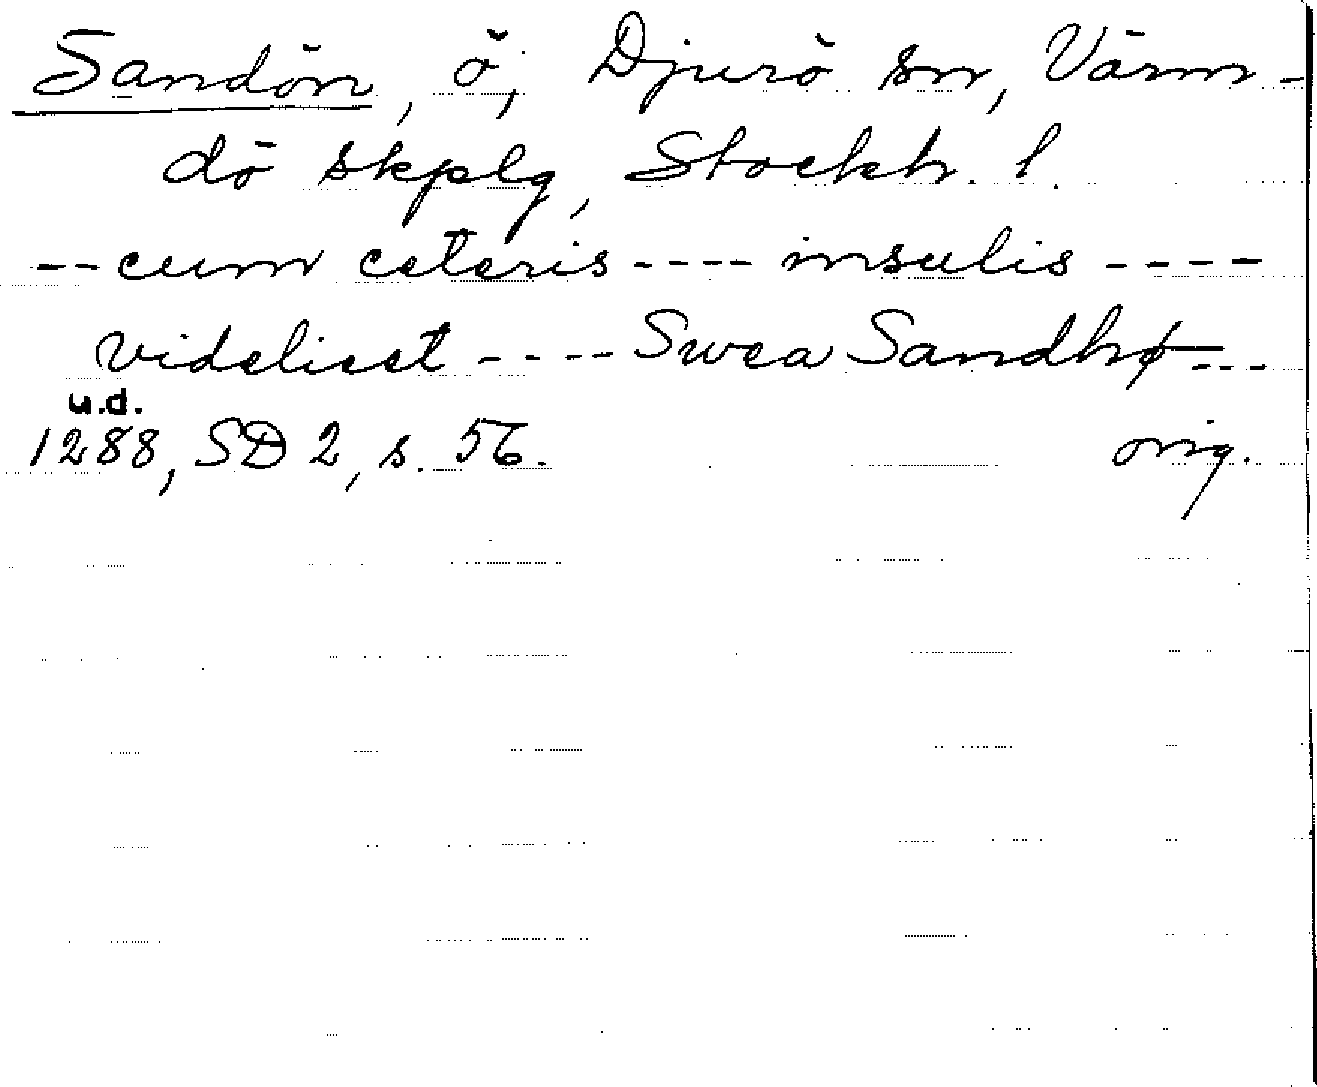 Sandön, ö, Djurö sn, Värm-
dö skplg, Stockh. l.
--cum ceteris---- insulis ----
videlicet ---- Swea Sandhø---
u.d.
1288, SD 2, s. 56. orig.